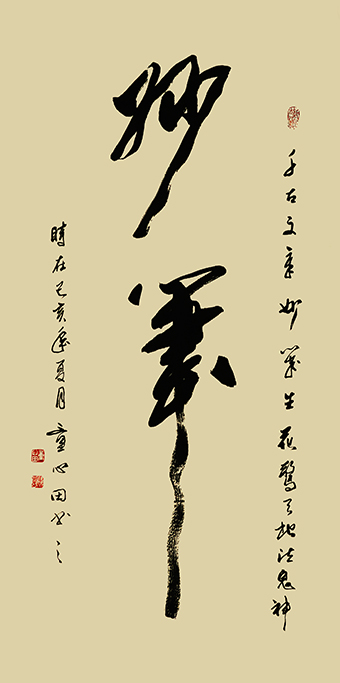 千古文章妙筆生花驚天地泣鬼神
妙筆
時在己亥年夏月童心田书之